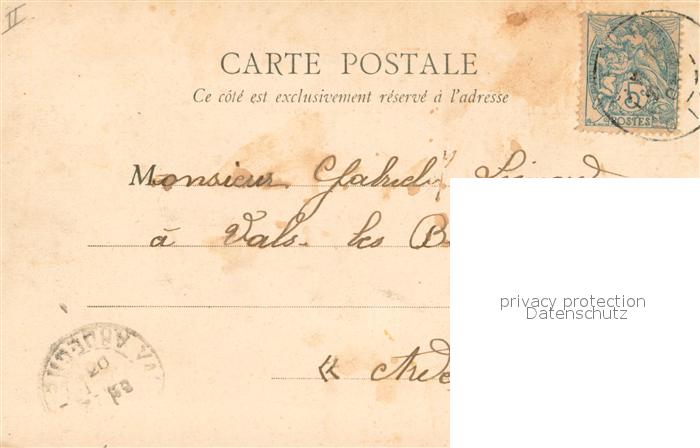 II
CARTE POSTALE
Ce côté est exclusivement réservé à l'adresse
5
POSTES
Monsieur Gabriel
à Vals-les B
privacy protection
Datenschutz
« Arde